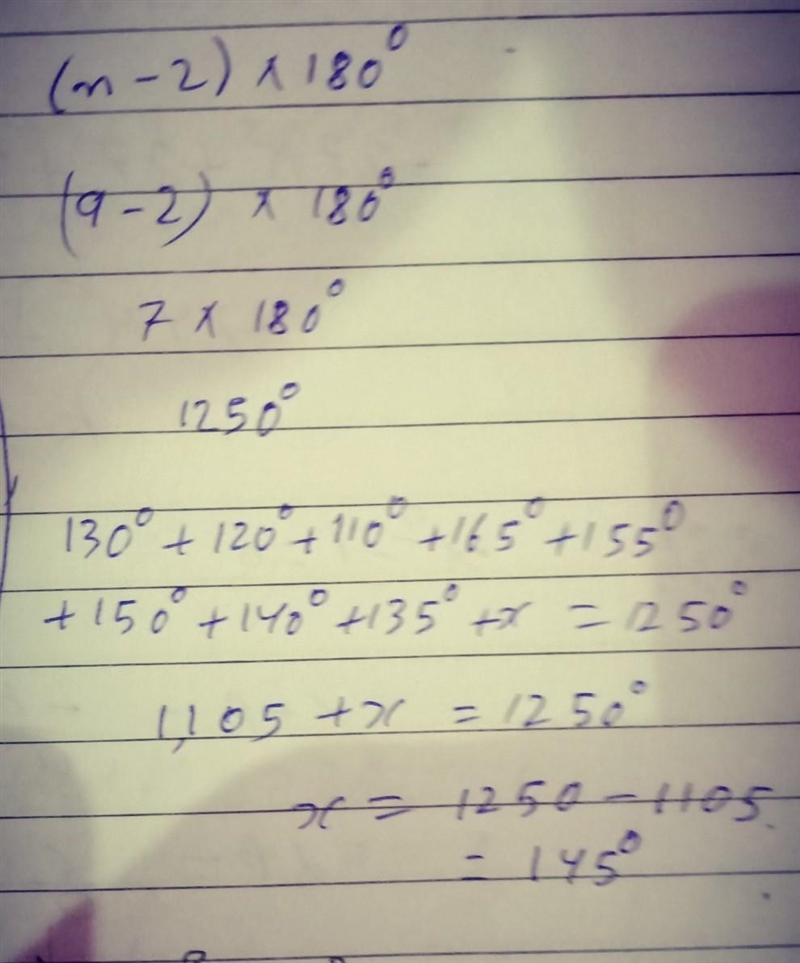 (n-2) × 180°
(9-2) × 180°
7 × 180°
1250°
130° + 120° + 110° + 165° + 155°
+ 150° + 140° + 135° + x = 1250°
1,105 + x = 1250°
x = 1250 - 1105
= 145°